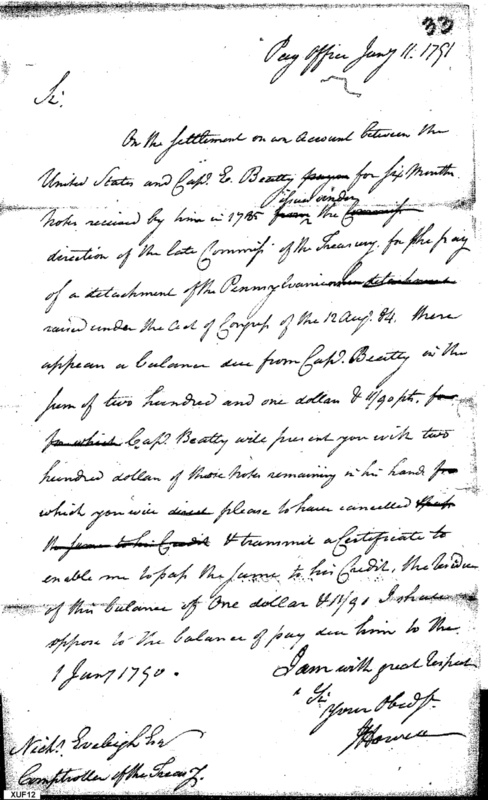 33
Pay Office Jany 11. 1791
Sir.
On the Settlement on an Account between the
United States and Capt. E. Beatty for Six Months
issued under
Notes received by him in 1785 from the Commiss
direction of the late Commiss. of the Treasury for the pay
of a detachment of the Pennsylvania detachment
raised under the Act of Congress of the 12 Aug. 84. there
appears a balance due from Capt. Beatty in the
sum of two hundred and one dollar & 11/90 pts. for
for which Capt. Beatty will present you with two
hundred dollars of those Notes remaining in his hands for
which you will direct please to have cancelled
the same to his Credit & transmit a Certificate to
enable me to pass the same to his Credit, the residue
of this balance of One dollar & 11/90 I shall
oppose to the balance of pay due him to the
1 Jany 1790.
I am with great respect
Sir
Your Obedt.
JHowell
Nichs. Eveleigh Esq
Comptroller of the Treasy.
XUF12